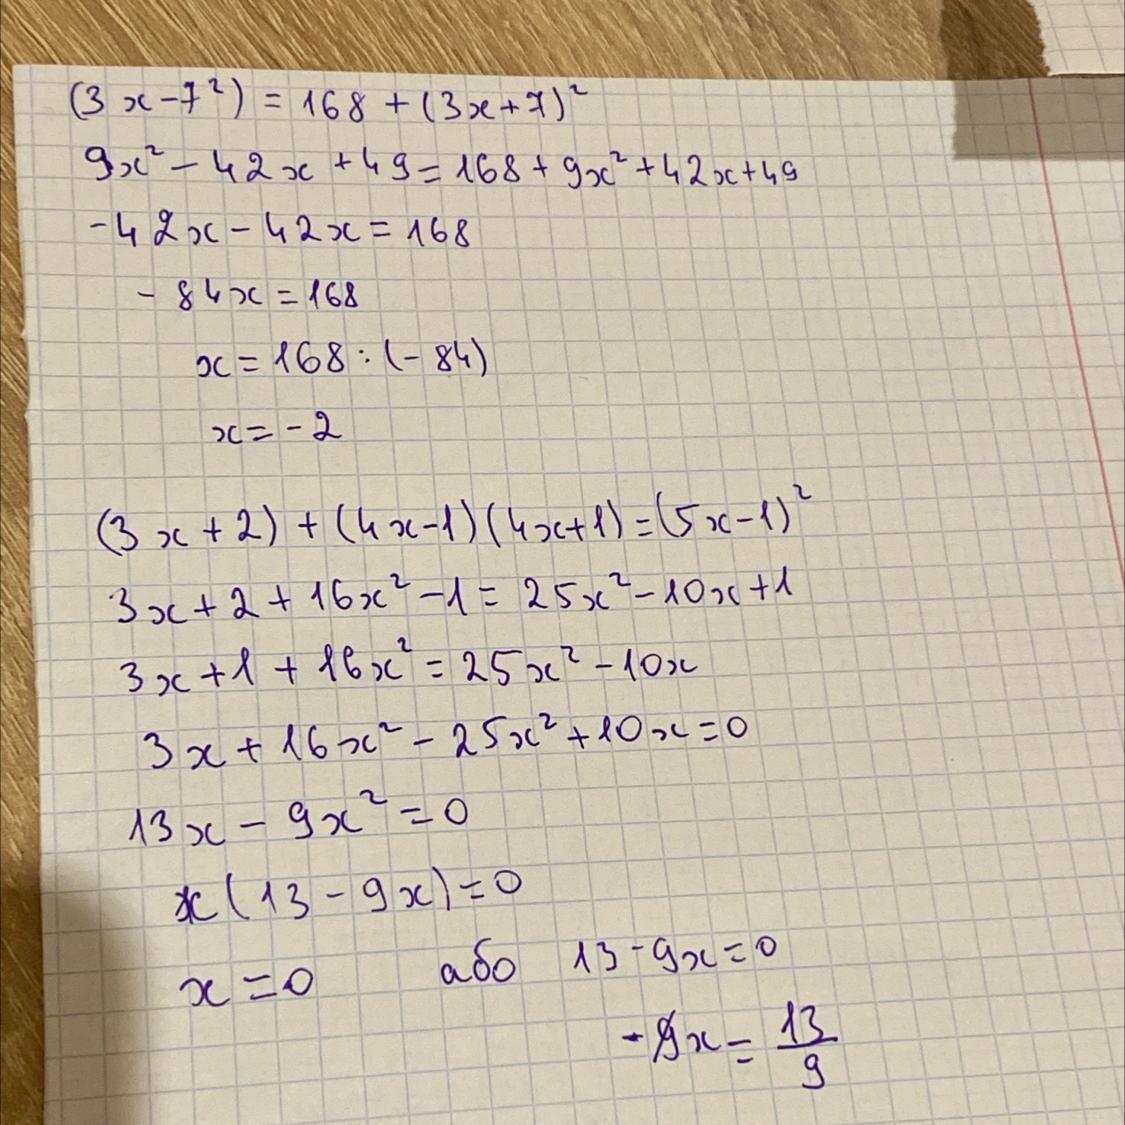 (3x-7²) = 168 + (3x+7)²
9x² - 42x + 49 = 168 + 9x² + 42x + 49
-42x - 42x = 168
- 84x = 168
x = 168 : (- 84)
x = - 2
(3x + 2) + (4x-1)(4x+1) = (5x-1)²
3x + 2 + 16x² - 1 = 25x² - 10x + 1
3x + 1 + 16x² = 25x² - 10x
3x + 16x² - 25x² + 10x = 0
13x - 9x² = 0
x(13 - 9x) = 0
x = 0 або 13 - 9x = 0
- 9x = 13/9